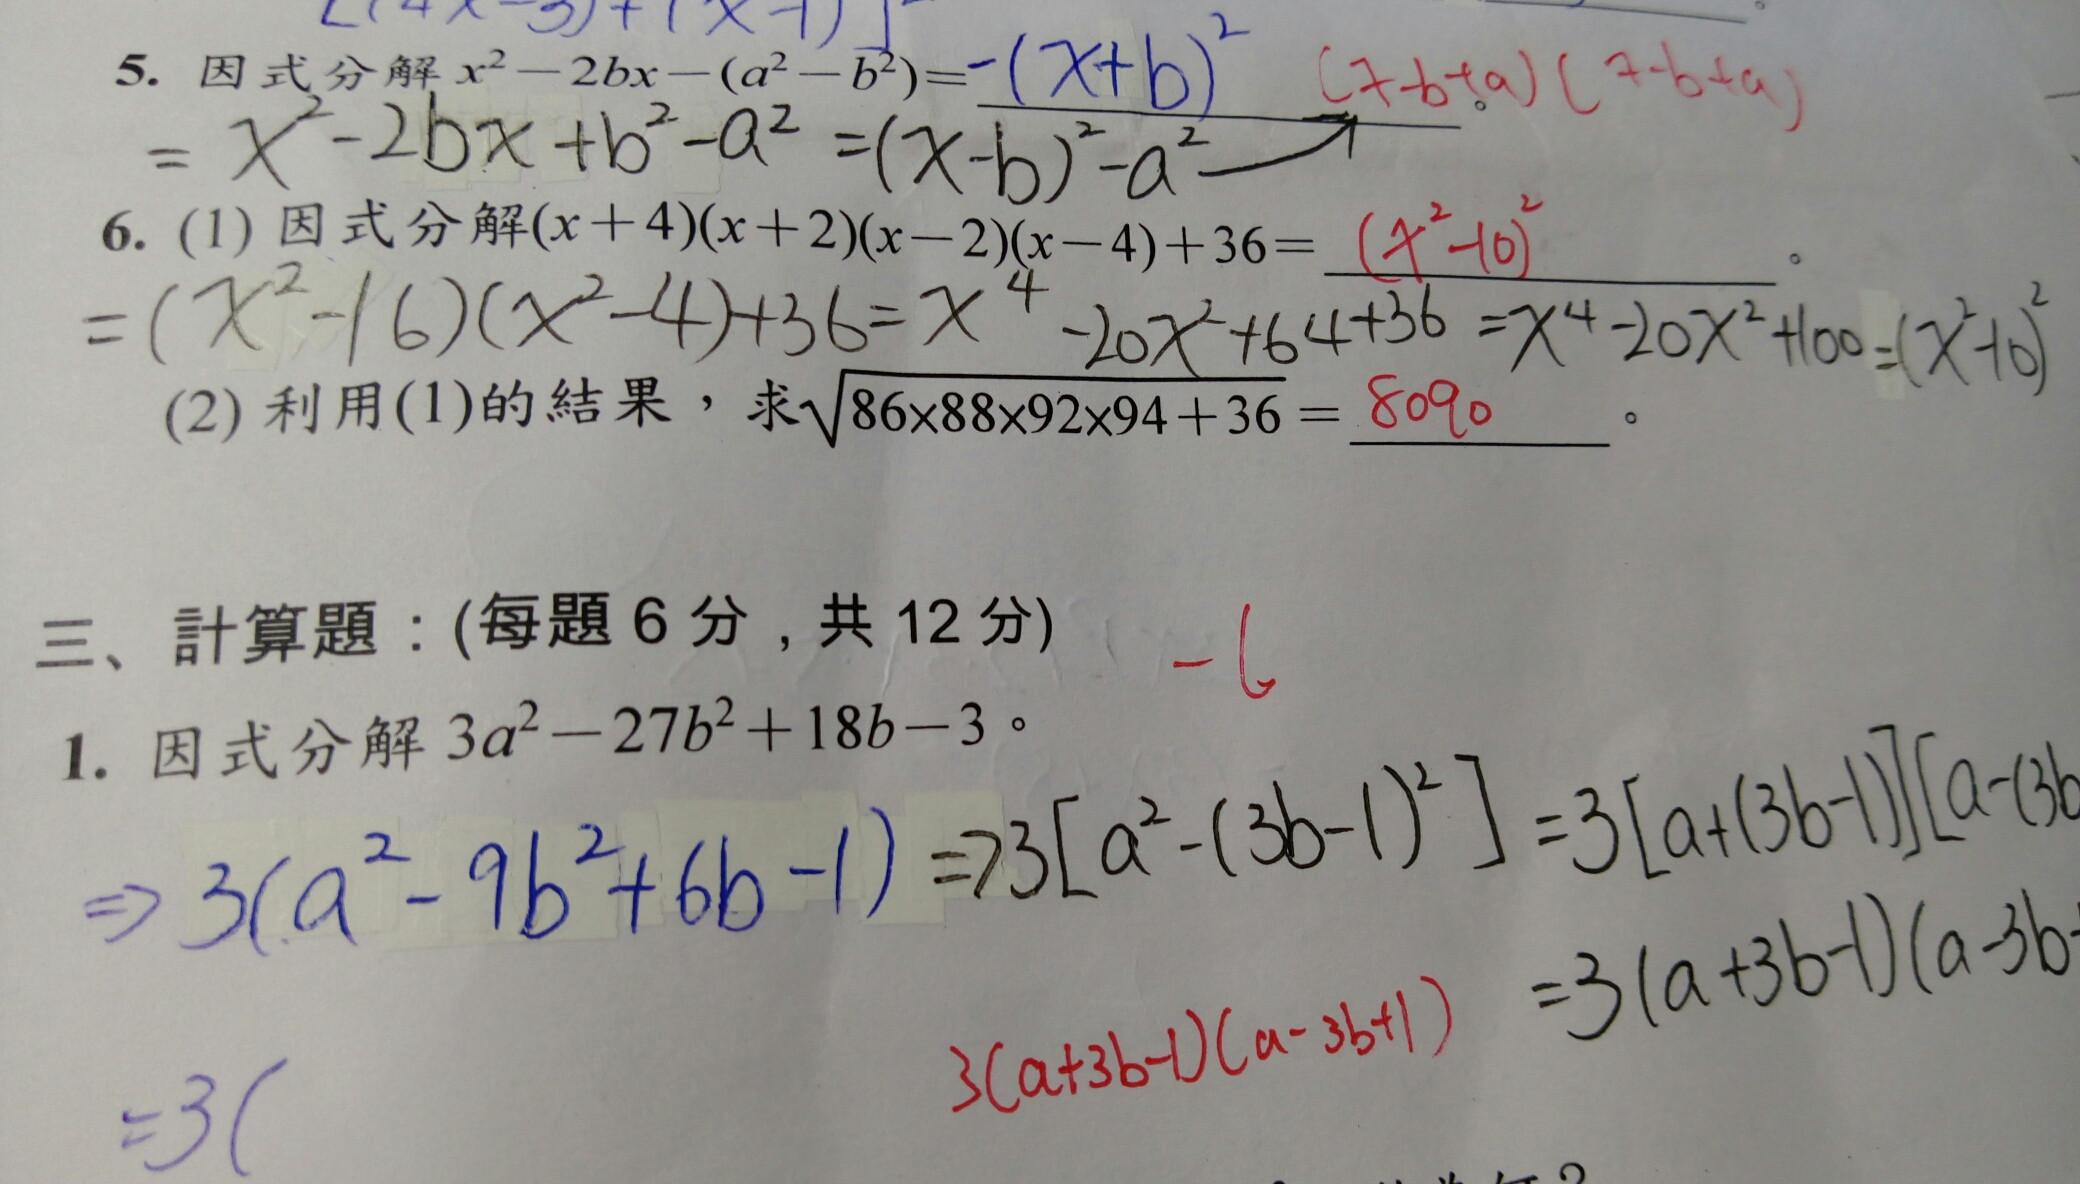 [(4x-3)+(x-1)]²
5. 因式分解 x²－2bx－(a²－b²)＝-(x+b)² 。 (x-b+a)(x-b+a)
= x²-2bx+b²-a² =(x-b)²-a²
6. (1) 因式分解(x＋4)(x＋2)(x－2)(x－4)＋36＝ (x²-10)² 。
=(x²-16)(x²-4)+36=x⁴-20x²+64+36 =x⁴-20x²+100=(x²-10)²
(2) 利用(1)的結果，求√86×88×92×94＋36 ＝ 8090 。
三、計算題：(每題 6 分，共 12 分) -6
1. 因式分解 3a²－27b²＋18b－3。
⇒ 3(a²-9b²+6b-1) ⇒3[a²-(3b-1)²] =3[a+(3b-1)][a-(3b
=3(a+3b-1)(a-3b
3(a+3b-1)(a-3b+1)
=3(